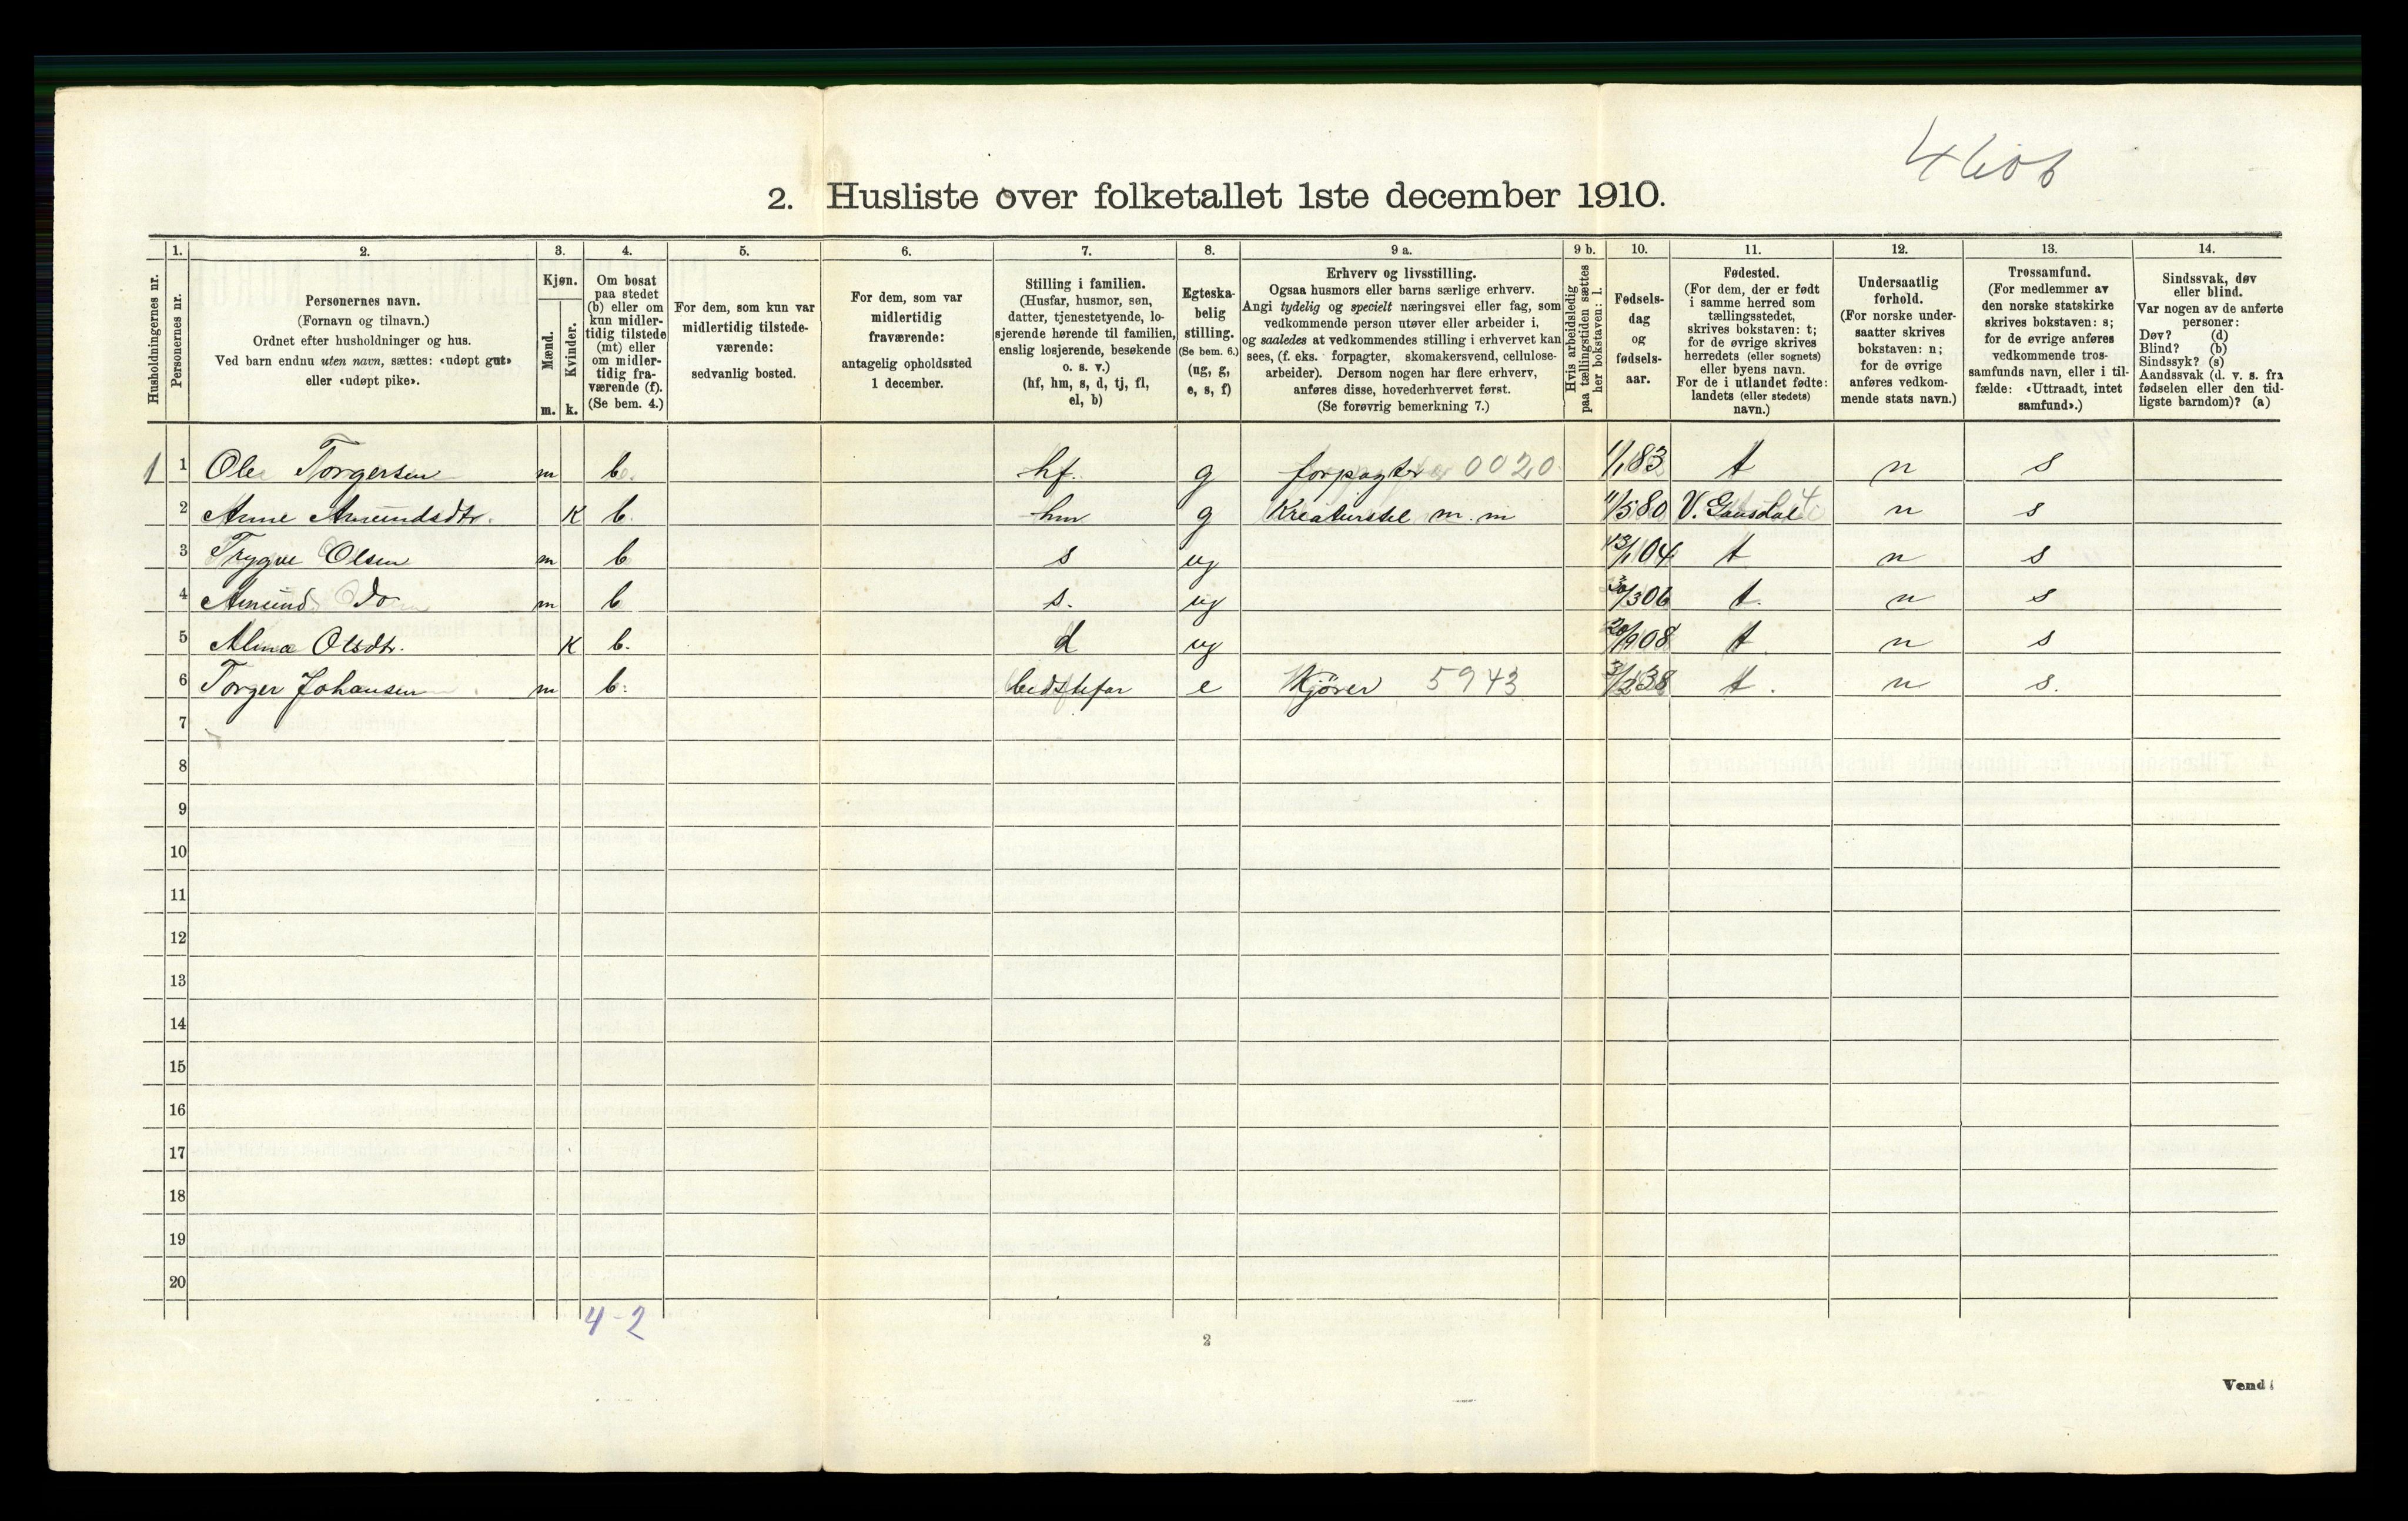 4606
2. Husliste over folketallet 1ste december 1910.
1. 2. 3. 4. 5. 6. 7. 8. 9 a. 9 b. 10. 11. 12. 13. 14.
Husholdningernes nr.
Personernes nr.
Personernes navn.
(Fornavn og tilnavn.)
Ordnet efter husholdninger og hus.
Ved barn endnu uten navn, sættes: «udøpt gut»
eller «udøpt pike».
Kjøn.
Mænd.
m.
Kvinder.
k.
Om bosat
paa stedet
(b) eller om
kun midler-
tidig tilstede
(mt) eller
om midler-
tidig fra-
værende (f).
(Se bem. 4.)
For dem, som kun var
midlertidig tilstede-
værende:
sedvanlig bosted.
For dem, som var
midlertidig
fraværende:
antagelig opholdssted
1 december.
Stilling i familien.
(Husfar, husmor, søn,
datter, tjenestetyende, lo-
sjerende hørende til familien,
enslig losjerende, besøkende
o. s. v.)
(hf, hm, s, d, tj, fl,
el, b)
Egteska-
belig
stilling.
(Se bem. 6.)
(ug, g,
e, s, f)
Erhverv og livsstilling.
Ogsaa husmors eller barns særlige erhverv.
Angi tydelig og specielt næringsvei eller fag, som
vedkommende person utøver eller arbeider i,
og saaledes at vedkommendes stilling i erhvervet kan
sees, (f. eks. forpagter, skomakersvend, cellulose-
arbeider). Dersom nogen har flere erhverv,
anføres disse, hovederhvervet først.
(Se forøvrig bemerkning 7.)
Hvis arbeidsledig
paa tællingstiden sættes
her bokstaven: l.
Fødsels-
dag
og
fødsels-
aar.
Fødested.
(For dem, der er født
i samme herred som
tællingsstedet,
skrives bokstaven: t;
for de øvrige skrives
herredets (eller sognets)
eller byens navn.
For de i utlandet fødte:
landets (eller stedets)
navn.)
Undersaatlig
forhold.
(For norske under-
saatter skrives
bokstaven: n;
for de øvrige
anføres vedkom-
mende stats navn.)
Trossamfund.
(For medlemmer av
den norske statskirke
skrives bokstaven: s;
for de øvrige anføres
vedkommende tros-
samfunds navn, eller i til-
fælde: «Uttraadt, intet
samfund».)
Sindssvak, døv
eller blind.
Var nogen av de anførte
personer:
Døv? (d)
Blind? (b)
Sindssyk? (s)
Aandssvak (d. v. s. fra
fødselen eller den tid-
ligste barndom)? (a)
1 1 Ole Torgersen m b. hf. g forpagter 0020 1/1 83 t n s
2 Anne Amundsdtr. K b. hm g Kreaturstel m. m 11/5 80 V. Gausdal n s
3 Trygve Olsen m b s ug 13/1 04 t n s
4 Amund do m b s. ug 30/3 06 t. n s
5 Alma Olsdtr. K b. d ug 20/9 08 t. n s
6 Torger Johansen m b. bedstefar e Kjører 5943 3/2 38 t. n s.
7
8
9
10
11
12
13
14
15
16
17
18
19
20
4-2
2
Vend!